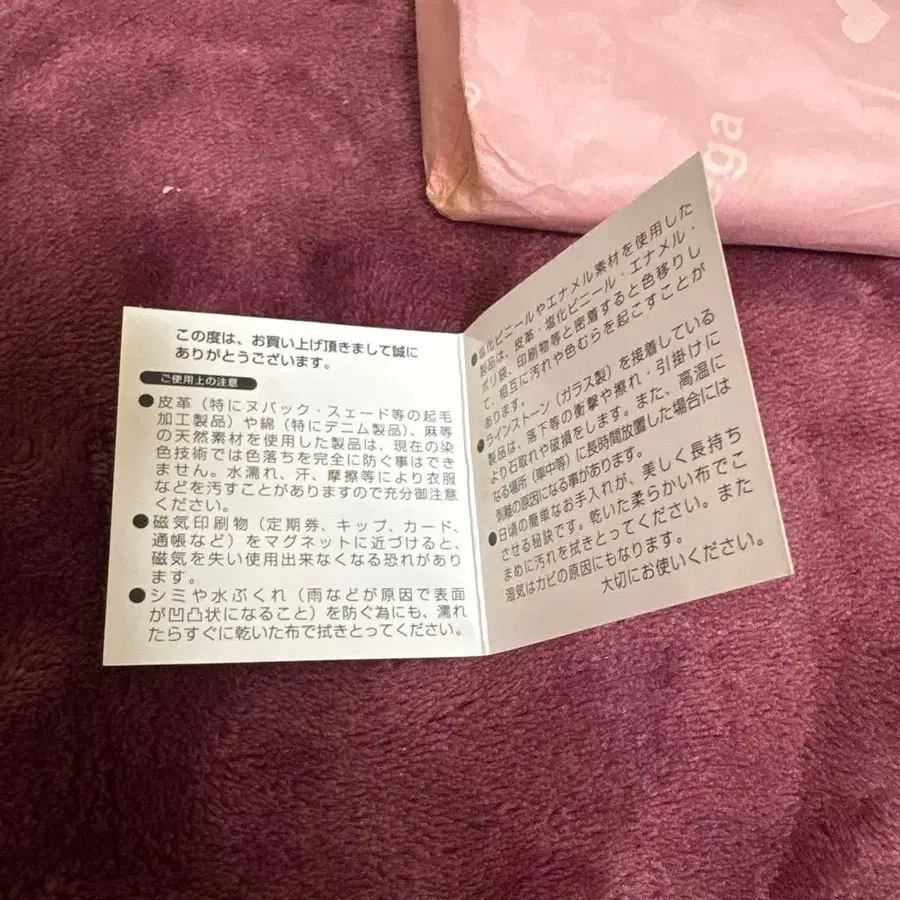 この度は、お買い上げ頂きまして誠に
ありがとうございます。
ご使用上の注意
●皮革（特にヌバック・スエード等の起毛
加工製品）や綿（特にデニム製品）、麻等
の天然素材を使用した製品は、現在の染
色技術では色落ちを完全に防ぐ事はでき
ません。水濡れ、汗、摩擦等により衣服
などを汚すことがありますので充分御注意
ください。
●磁気印刷物（定期券、キップ、カード、
通帳など）をマグネットに近づけると、
磁気を失い使用出来なくなる恐れがあり
ます。
●シミや水ぶくれ（雨などが原因で表面
が凹凸状になること）を防ぐ為にも、濡れ
たらすぐに乾いた布で拭きとってください。
●塩化ビニールやエナメル素材を使用した
製品は、皮革・塩化ビニール・エナメル・
ポリ袋、印刷物等と密着すると色移りし
て、相互に汚れや色むらを起こすことが
あります。
●ラインストーン（ガラス製）を接着している
製品は、落下等の衝撃や擦れ・引掛けに
より石取れや破損をします。また、高温に
なる場所（車中等）に長時間放置した場合には
剥離の原因になる事があります。
●日頃の簡単なお手入れが、美しく長持ち
させる秘訣です。乾いた柔らかい布でこ
まめに汚れを拭きとってください。また
湿気はカビの原因にもなります。
大切にお使いください。
ega